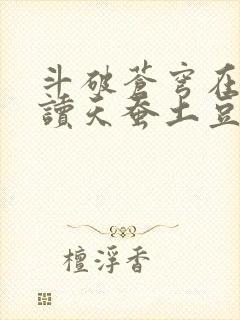 斗破苍穹在
讀天蚕土豆
檀浮香